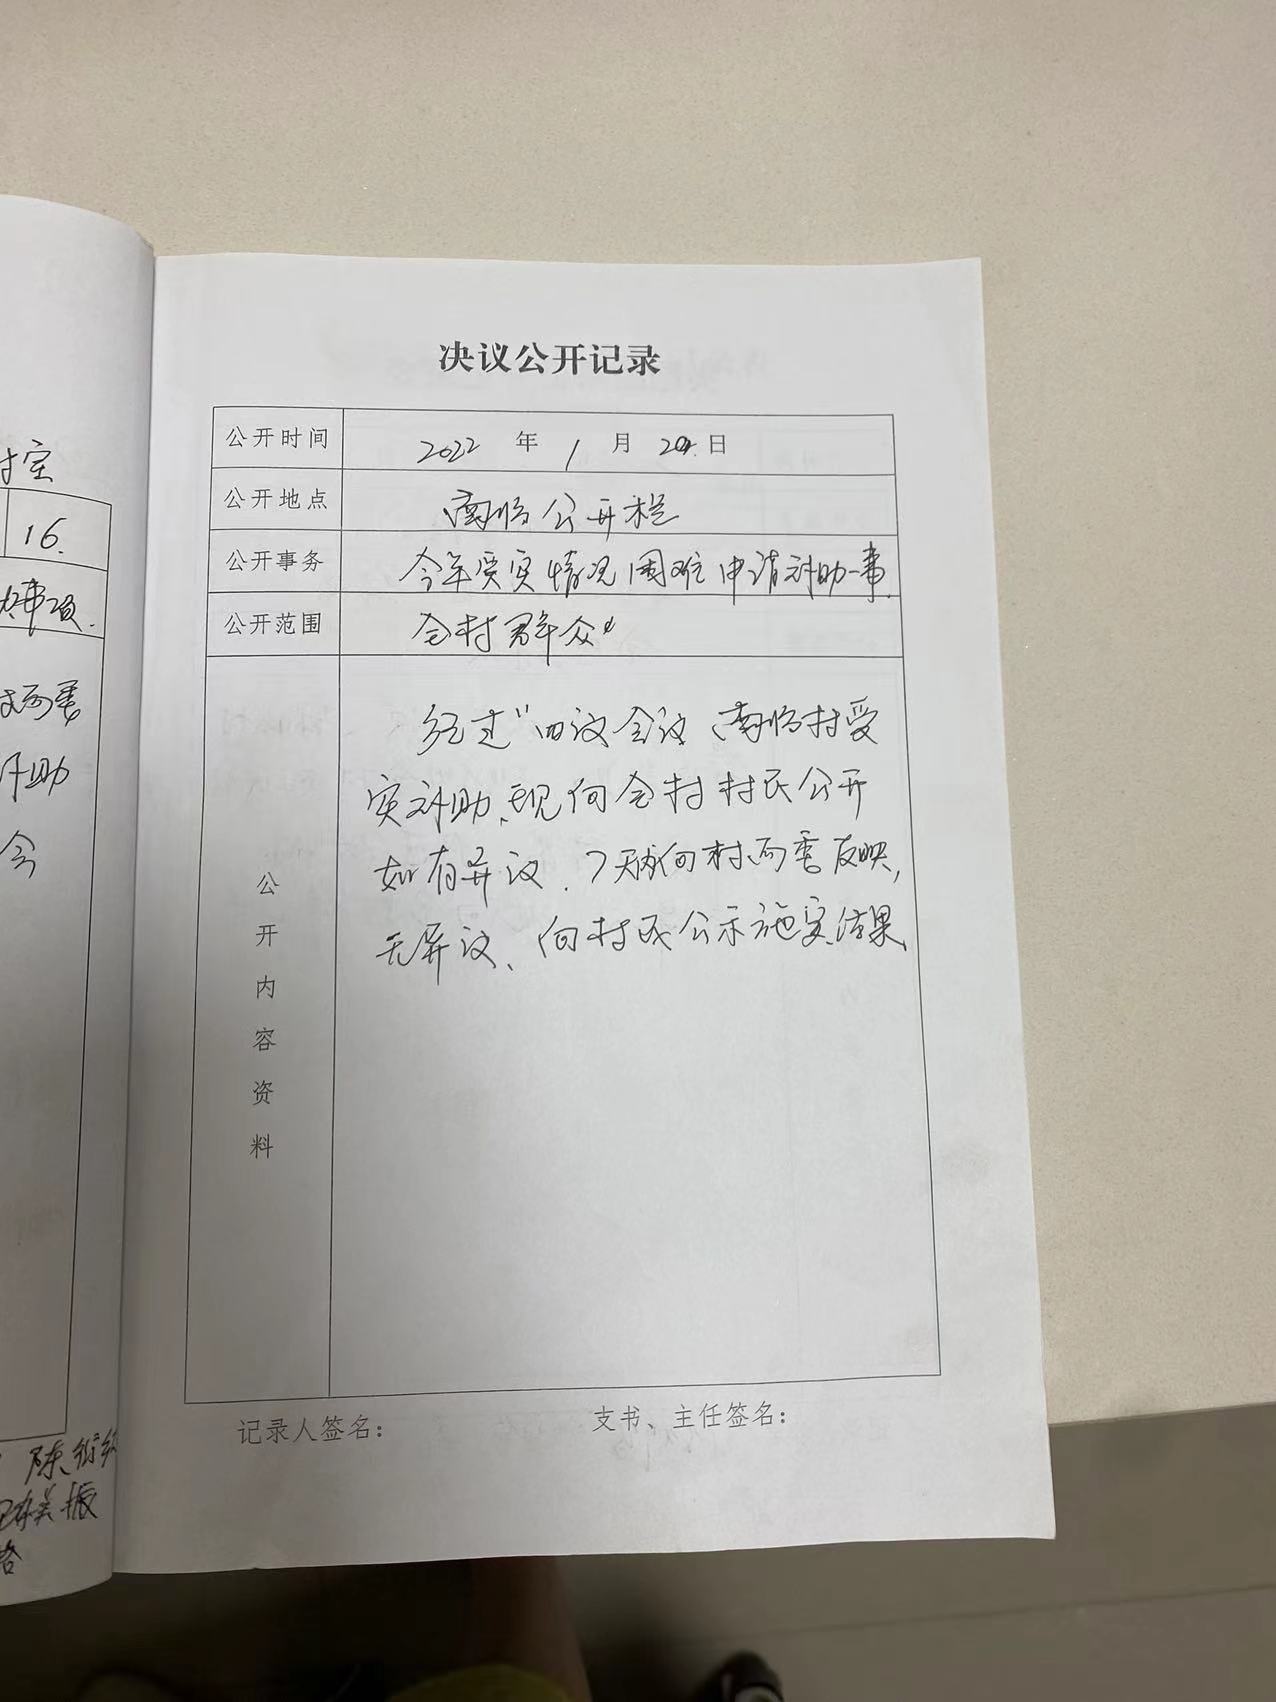 决议公开记录
公开时间 2022 年 1 月 29 日
公开地点 南临公开栏
公开事务 今年受灾情况困难申请补助一事
公开范围 全村群众
公开内容资料
经过"四议会议、南临村受
灾补助、现向全村村民公开
如有异议.7天内向村两委反映,
无异议、向村民公示施实结果、
记录人签名:
支书、主任签名:
村室
16.
事项.
村两委
补助
会
陈
振